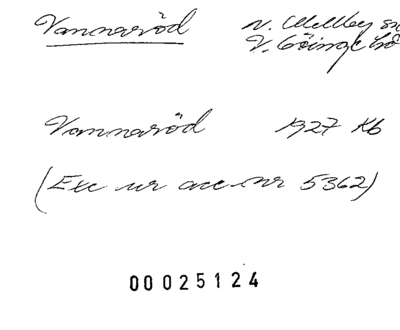 Vannaröd N. Mellby sn
V. Göinge hd
Vannaröd 1927 Kb
(Exc ur acc nr 5362)
00025124